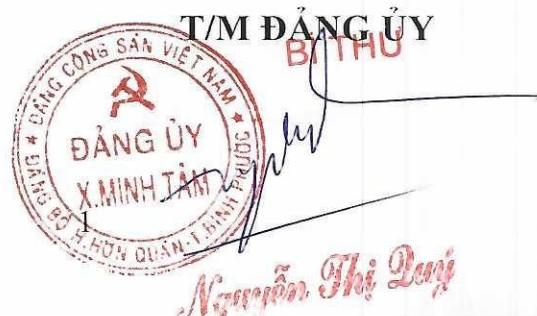 T/M ĐẢNG ỦY
BÍ THƯ
ĐẢNG CỘNG SẢN VIỆT NAM
ĐẢNG ỦY
X.MINH TÂM
ĐẢNG BỘ H.HỚN QUẢN-T.BÌNH PHƯỚC
1
Nguyễn Thị Quý